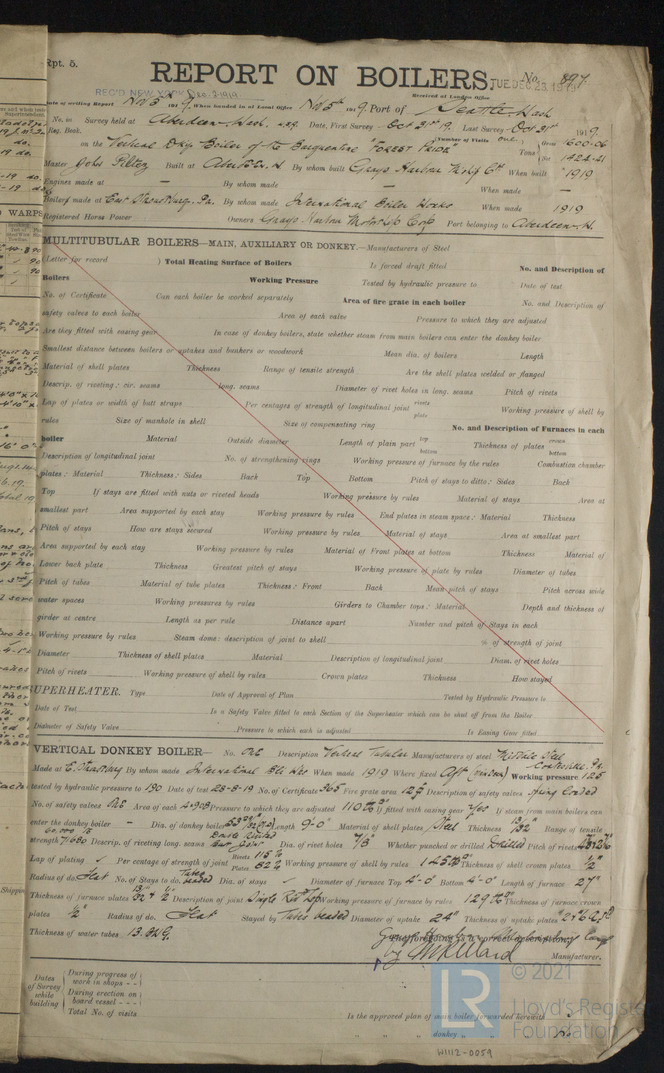 Rpt. 5.
REPORT ON BOILERS.
No. 897
REC'D NEW YORK Dec. 2-1919
TUE. DEC 23 1919
Received at London Office
Date of writing Report Nov 5th 1919 When handed in at Local Office Nov 5th 1919 Port of Seattle Wash
No. in Survey held at Aberdeen, Wash. Date, First Survey Oct 31st 19. Last Survey Oct 31st 1919.
Reg. Book.
(Number of Visits one)
on the Vertical Dky Boiler of the Barquentine "FOREST PRIDE" Tons Gross 1600.06
Net 1424.41
Master John Piltz Built at Aberdeen, W. By whom built Grays Harbor Motorship Cn When built 1919
Engines made at — By whom made — When made —
Boilers made at East Stroudsburg, Pa. By whom made International Boiler Works When made 1919
Registered Horse Power Owners Grays Harbor Motorship Corp Port belonging to Aberdeen, W.
MULTITUBULAR BOILERS—MAIN, AUXILIARY OR DONKEY.—Manufacturers of Steel
(Letter for record ) Total Heating Surface of Boilers Is forced draft fitted No. and Description of
Boilers Working Pressure Tested by hydraulic pressure to Date of test
No. of Certificate Can each boiler be worked separately Area of fire grate in each boiler No. and Description of
safety valves to each boiler Area of each valve Pressure to which they are adjusted
Are they fitted with easing gear In case of donkey boilers, state whether steam from main boilers can enter the donkey boiler
Smallest distance between boilers or uptakes and bunkers or woodwork Mean dia. of boilers Length
Material of shell plates Thickness Range of tensile strength Are the shell plates welded or flanged
Descrip. of riveting: cir. seams long. seams Diameter of rivet holes in long. seams Pitch of rivets
Lap of plates or width of butt straps Per centages of strength of longitudinal joint rivets plate Working pressure of shell by
rules Size of manhole in shell Size of compensating ring No. and Description of Furnaces in each
boiler Material Outside diameter Length of plain part top bottom Thickness of plates crown bottom
Description of longitudinal joint No. of strengthening rings Working pressure of furnace by the rules Combustion chamber
plates: Material Thickness: Sides Back Top Bottom Pitch of stays to ditto: Sides Back
Top If stays are fitted with nuts or riveted heads Working pressure by rules Material of stays Area at
smallest part Area supported by each stay Working pressure by rules End plates in steam space: Material Thickness
Pitch of stays How are stays secured Working pressure by rules Material of stays Area at smallest part
Area supported by each stay Working pressure by rules Material of Front plates at bottom Thickness Material of
Lower back plate Thickness Greatest pitch of stays Working pressure of plate by rules Diameter of tubes
Pitch of tubes Material of tube plates Thickness: Front Back Mean pitch of stays Pitch across wide
water spaces Working pressures by rules Girders to Chamber tops: Material Depth and thickness of
girder at centre Length as per rule Distance apart Number and pitch of Stays in each
Working pressure by rules Steam dome: description of joint to shell % of strength of joint
Diameter Thickness of shell plates Material Description of longitudinal joint Diam. of rivet holes
Pitch of rivets Working pressure of shell by rules Crown plates Thickness How stayed
UPERHEATER. Type Date of Approval of Plan Tested by Hydraulic Pressure to
Date of Test Is a Safety Valve fitted to each Section of the Superheater which can be shut off from the Boiler
Diameter of Safety Valve Pressure to which each is adjusted Is Easing Gear fitted
VERTICAL DONKEY BOILER— No. One Description Vertical Tubular Manufacturers of steel Midvale Steel Coatesville, Pa
Made at E. Stroudsburg By whom made International Blr Wks When made 1919 Where fixed Aft Working pressure 125
tested by hydraulic pressure to 190 Date of test 23-8-19 No. of Certificate 365 Fire grate area 12 Description of safety valves Spring Loaded
No. of safety valves One Area of each 4.908 Pressure to which they are adjusted 110 If fitted with easing gear Yes If steam from main boilers can
enter the donkey boiler — Dia. of donkey boiler Length 9'-0" Material of shell plates Steel Thickness 13/32" Range of tensile
strength Descrip. of riveting long. seams Butt Joint Dia. of rivet holes 7/8" Whether punched or drilled Drilled Pitch of rivets
Lap of plating ✓ Per centage of strength of joint Rivets 115% Plates Working pressure of shell by rules 145 Thickness of shell crown plates 1/2"
Radius of do. Flat No. of Stays to do. Tubes beaded Dia. of stays ✓ Diameter of furnace Top 4'-0" Bottom 4'-0" Length of furnace 27"
Thickness of furnace plates Description of joint Single Riv Lap Working pressure of furnace by rules 129 Thickness of furnace crown
plates 1/2" Radius of do. Flat Stayed by Tubes beaded Diameter of uptake 24" Thickness of uptake plates
Thickness of water tubes 13 BWG.
The foregoing is a correct description,
Manufacturer.
Dates of Survey while building
During progress of work in shops - -
During erection on board vessel - - -
Total No. of visits
Is the approved plan of main boiler forwarded herewith
" " " donkey " " No
LR
© 2021
Lloyd's Register
Foundation
W1112-0059